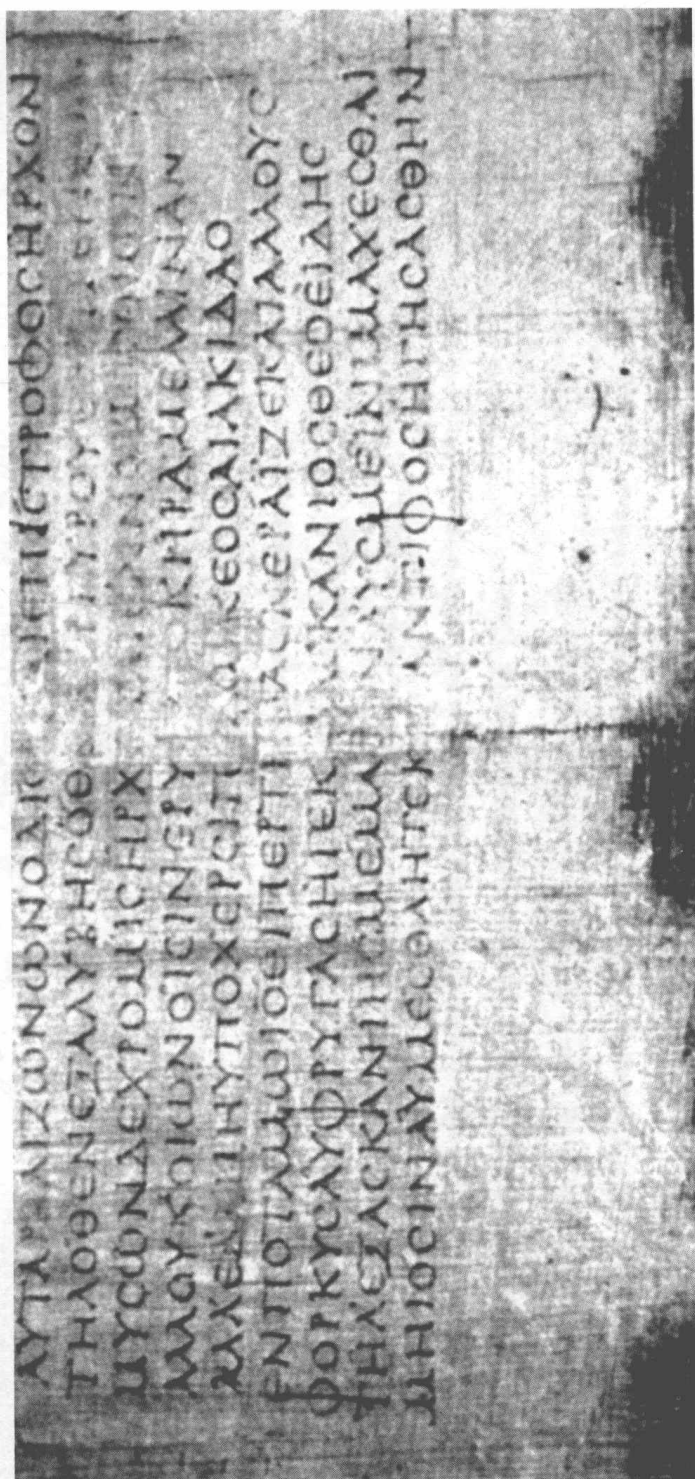 ΑΥΤΑΡ ΑΛΙΖΩΝΩΝΟΔΙΟ ΙΕΠΙϹΤΡΟΦΟϹΗΡΧΟΝ
ΤΗΛΟΘΕΝΕΞΑΛΥΒΗϹΟΘΕ ΡΓΥΡΟΥ
ΜΥϹΩΝΔΕΧΡΟΜΙϹΗΡΧ
ΑΛΛΟΥΚΟΙΩΝΟΙϹΙΝΕΡΥ ΚΗΡΑΜΕΛΑΙΝΑΝ
ΑΛΛΕΔΑΜΗΥΠΟΧΕΡϹΙΠ ΩΚΕΟϹΑΙΑΚΙΔΑΟ
ΕΝΠΟΤΑΜΩΙΟΘΕΙΠΕΡΤΡ ΑϹΚΕΡΑΪΖΕΚΑΙΑΛΛΟΥϹ
ΦΟΡΚΥϹΑΥΦΡΥΓΑϹΗΓΕΚ ϹΚΑΝΙΟϹΘΕΟΕΙΔΗϹ
ΤΗΛΕΞΑϹΚΑΝΙΗϹΜΕΜΑ ΥϹΜΕΙΝΙΜΑΧΕϹΘΑΙ
ΜΗΙΟϹΙΝΑΥΜΕϹΘΛΗΤΕΚ ΑΝΤΙΦΟϹΗΓΗϹΑϹΘΗΝ